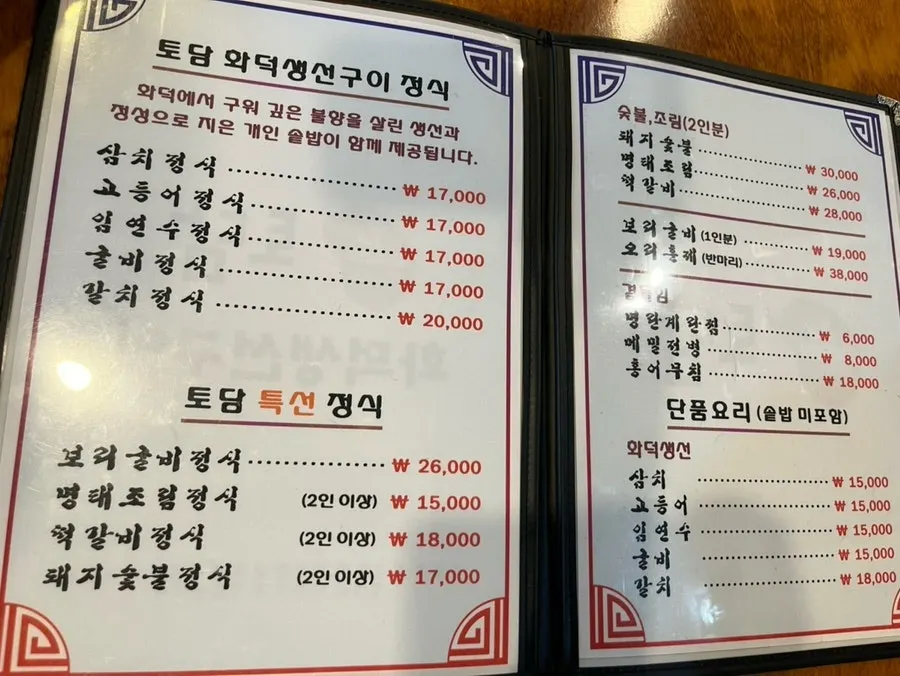 토담 화덕생선구이 정식
화덕에서 구워 깊은 불향을 살린 생선과
정성으로 지은 개인 솥밥이 함께 제공됩니다.
삼치정식 ₩ 17,000
고등어정식 ₩ 17,000
임연수정식 ₩ 17,000
굴비정식 ₩ 17,000
갈치정식 ₩ 20,000
토담 특선 정식
보리굴비정식 ₩ 26,000
명태조림정식 (2인 이상) ₩ 15,000
떡갈비정식 (2인 이상) ₩ 18,000
돼지숯불정식 (2인 이상) ₩ 17,000
숯불,조림(2인분)
돼지숯불 ₩ 30,000
명태조림 ₩ 26,000
떡갈비 ₩ 28,000
보리굴비 (1인분) ₩ 19,000
오리훈제 (반마리) ₩ 38,000
명란계란찜 ₩ 6,000
메밀전병 ₩ 8,000
홍어무침 ₩ 18,000
단품요리 (솥밥 미포함)
화덕생선
삼치 ₩ 15,000
고등어 ₩ 15,000
임연수 ₩ 15,000
굴비 ₩ 15,000
갈치 ₩ 18,000